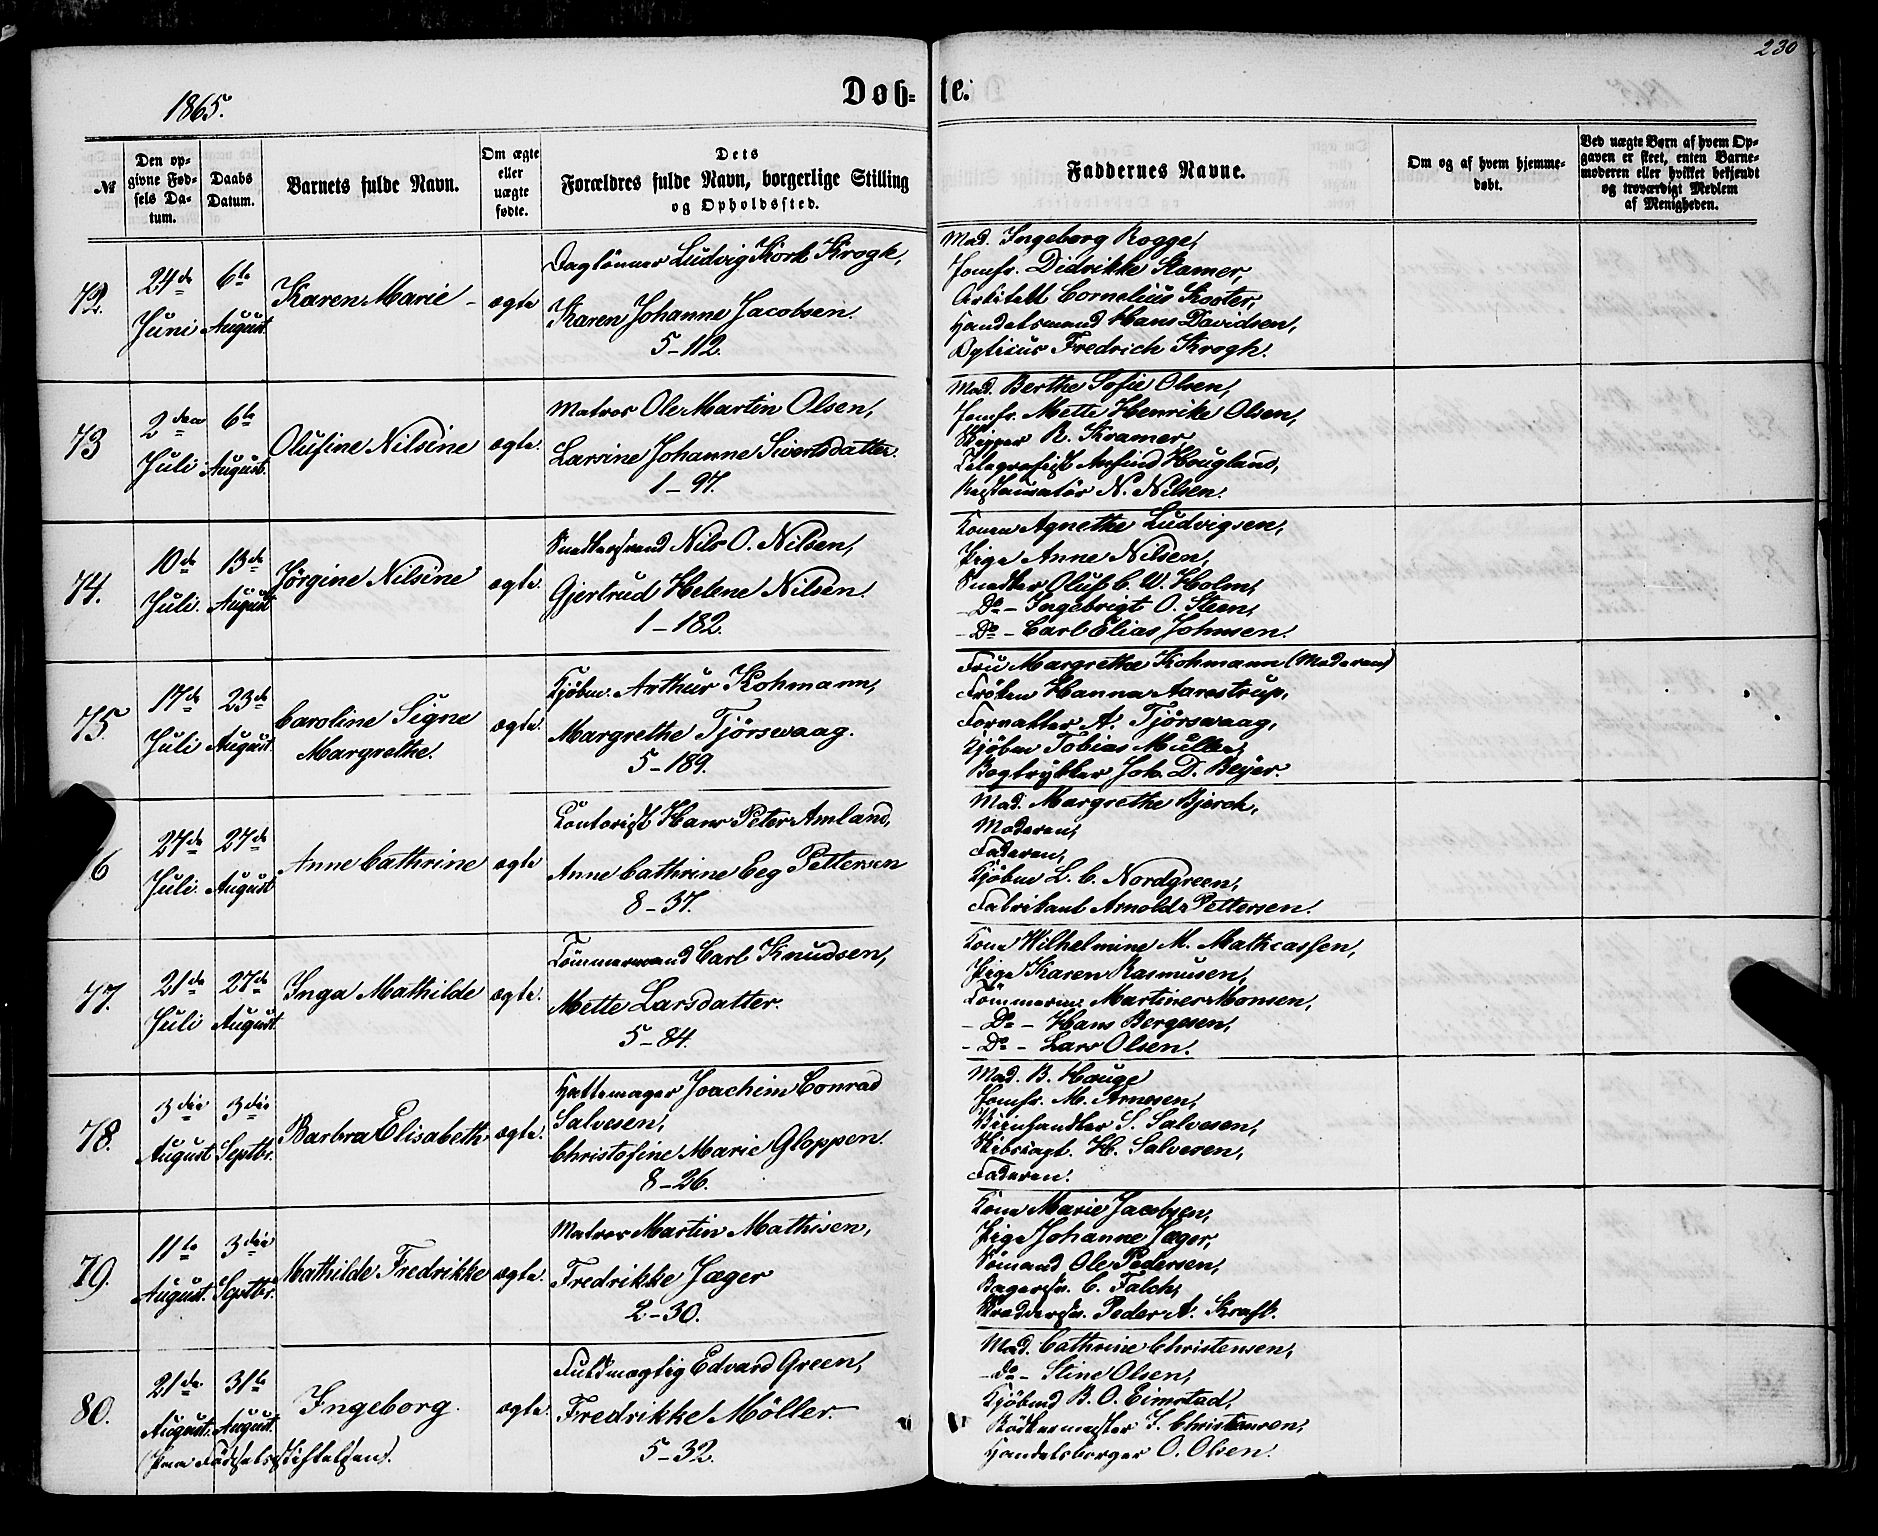 230
1865.
Døb-te.
№
Den opgivne Fødsels Datum.
Daabs Datum.
Barnets fulde Navn.
Om ægte eller uægte fødte.
Dets Forældres fulde Navn, borgerlige Stilling og Opholdssted.
Faddernes Navne.
Om og af hvem hjemmedøbt.
Ved uægte Børn af hvem Opgaven er skeet, enten Barnemoderen eller hvilket bekjendt og troværdigt Medlem af Menigheden.
72.
24de Juni
6te August
Karen Marie -
ægte
Daglönner Ludvig Kort Krogh,
Karen Johanne Jacobsen.
5-112.
Mad. Ingeborg Rogge,
Jomfr. Didrikke Kamer,
Arkitekt Cornelius Kooter,
Handelsmand Hans Davidsen,
Opticus Fredrich Krogh.
73
2den Juli
6te August.
Olufine Nilsine
ægte.
Matros Ole Martin Olsen,
Larsine Johanne Sivertsdatter.
1-97.
Mad. Berthe Sofie Olsen,
Jomfr. Mette Henrike Olsen,
Skipper R. Kramer,
Telegrafist Arfind Hougland,
Restauratör N. Nilsen.
74.
10de Juli.
13de August
Jörgine Nilsine
ægte.
Snedkersvend Nils O. Nilsen,
Gjertrud Helene Nilsen.
1-182.
Konen Agnethe Ludvigsen,
Pige Anne Nilsen,
Snedker Oluf C. W. Holm,
-Do- Ingebrigt O. Steen,
-Do- Carl Elias Johnsen.
75.
17de Juli
23de August.
Caroline Signe
Margrethe.
ægte.
Kjöbm. Arthur Kohmann,
Margrethe Tjörswaag.
5-189.
Fru Margrethe Kohmann (Moderen)
Fröken Hanna Aarestrup,
Forvalter A. Tjörswaag,
Kjöbm Tobias Müller,
Bogtrykker Joh. D. Beyer.
6
27de Juli.
27de August
Anne Cathrine
ægte
Contorist Hans Peter Amland,
Anne Cathrine Eeg Pettersen
8-37.
Mad. Margrethe Bjerch,
Moderen,
Faderen,
Kjöbm L. C. Nordgreen,
Fabrikant Arnold Pettersen.
77.
21de Juli
27de August.
Inga Mathilde
ægte.
Tömmermand Carl Knudsen,
Mette Larsdatter.
5-84.
Kone Wilhelmine M. Mathiassen,
Pige Karen Rasmusen,
Tömmerm. Martines Monsen,
-Do- Hans Bergesen,
-Do- Lars Olsen.
78.
3die August
3die Septbr.
Barbra Elisabeth
ægte.
Hattemager Joachim Conrad
Salvesen,
Christofine Marie Gloppen.
8-26.
Mad. B. Hauge
Jomfr. M. Arnesen,
Viinhandler S. Salvesen,
Skibsagt. H. Salvesen,
Faderen.
79.
11te August.
3die Septbr.
Mathilde Fredrikke
ægte.
Matros Martin Mathisen,
Fredrikke Jæger
2-30.
Kone Marie Jacobsen,
Pige Johanne Jæger,
Sömand Ole Pedersen,
Bagersv. C. Falch,
Skreddersv. Peder A. Kraft.
80.
21de August.
31te August.
(Paa Födselsstiftelsen).
Ingeborg.
ægte.
Fuldmægtig Edvard Green,
Fredrikke Möller.
5-32.
Mad. Cathrine Christensen,
-do- Stine Olsen,
Kjöbmd B. O. Eimstad,
Bödkermester J. Christensen,
Handelsborger O. Olsen.